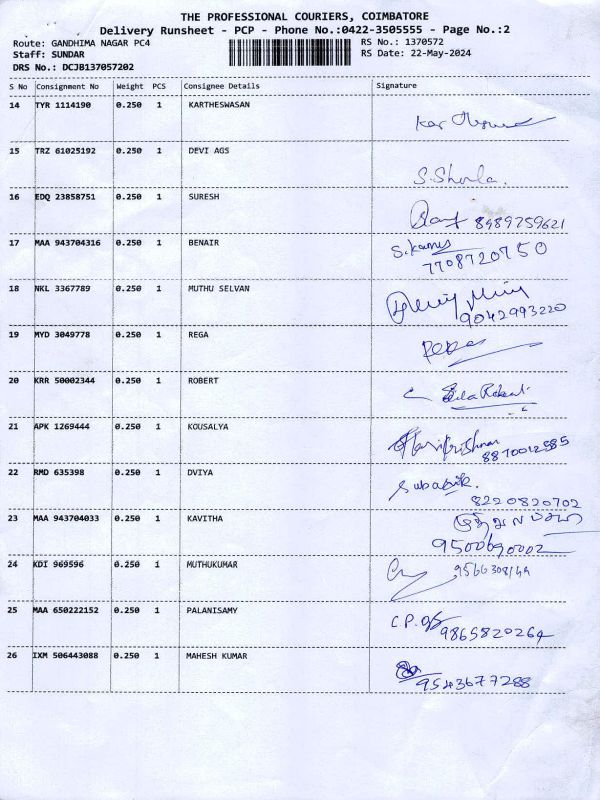 THE PROFESSIONAL COURIERS, COIMBATORE
Delivery Runsheet - PCP - Phone No.:0422-3505555 - Page No.:2
Route: GANDHIMA NAGAR PC4 RS No.: 1370572
Staff: SUNDAR RS Date: 22-May-2024
DRS No.: DCJB137057202
S No Consignment No Weight PCS Consignee Details Signature
14 TYR 1114190 0.250 1 KARTHESWASAN
15 TRZ 61025192 0.250 1 DEVI AGS
S.Sharla.
16 EDQ 23858751 0.250 1 SURESH
8989759621
17 MAA 943704316 0.250 1 BENAIR
7708720750
18 NKL 3367789 0.250 1 MUTHU SELVAN
9042993220
19 MYD 3049778 0.250 1 REGA
20 KRR 50002344 0.250 1 ROBERT
21 APK 1269444 0.250 1 KOUSALYA
8870012585
22 RMD 635398 0.250 1 DVIYA
8220820702
23 MAA 943704033 0.250 1 KAVITHA
9500690002
24 KDI 969596 0.250 1 MUTHUKUMAR
25 MAA 650222152 0.250 1 PALANISAMY
C.P.
9865820264
26 IXM 506443088 0.250 1 MAHESH KUMAR
9543677288